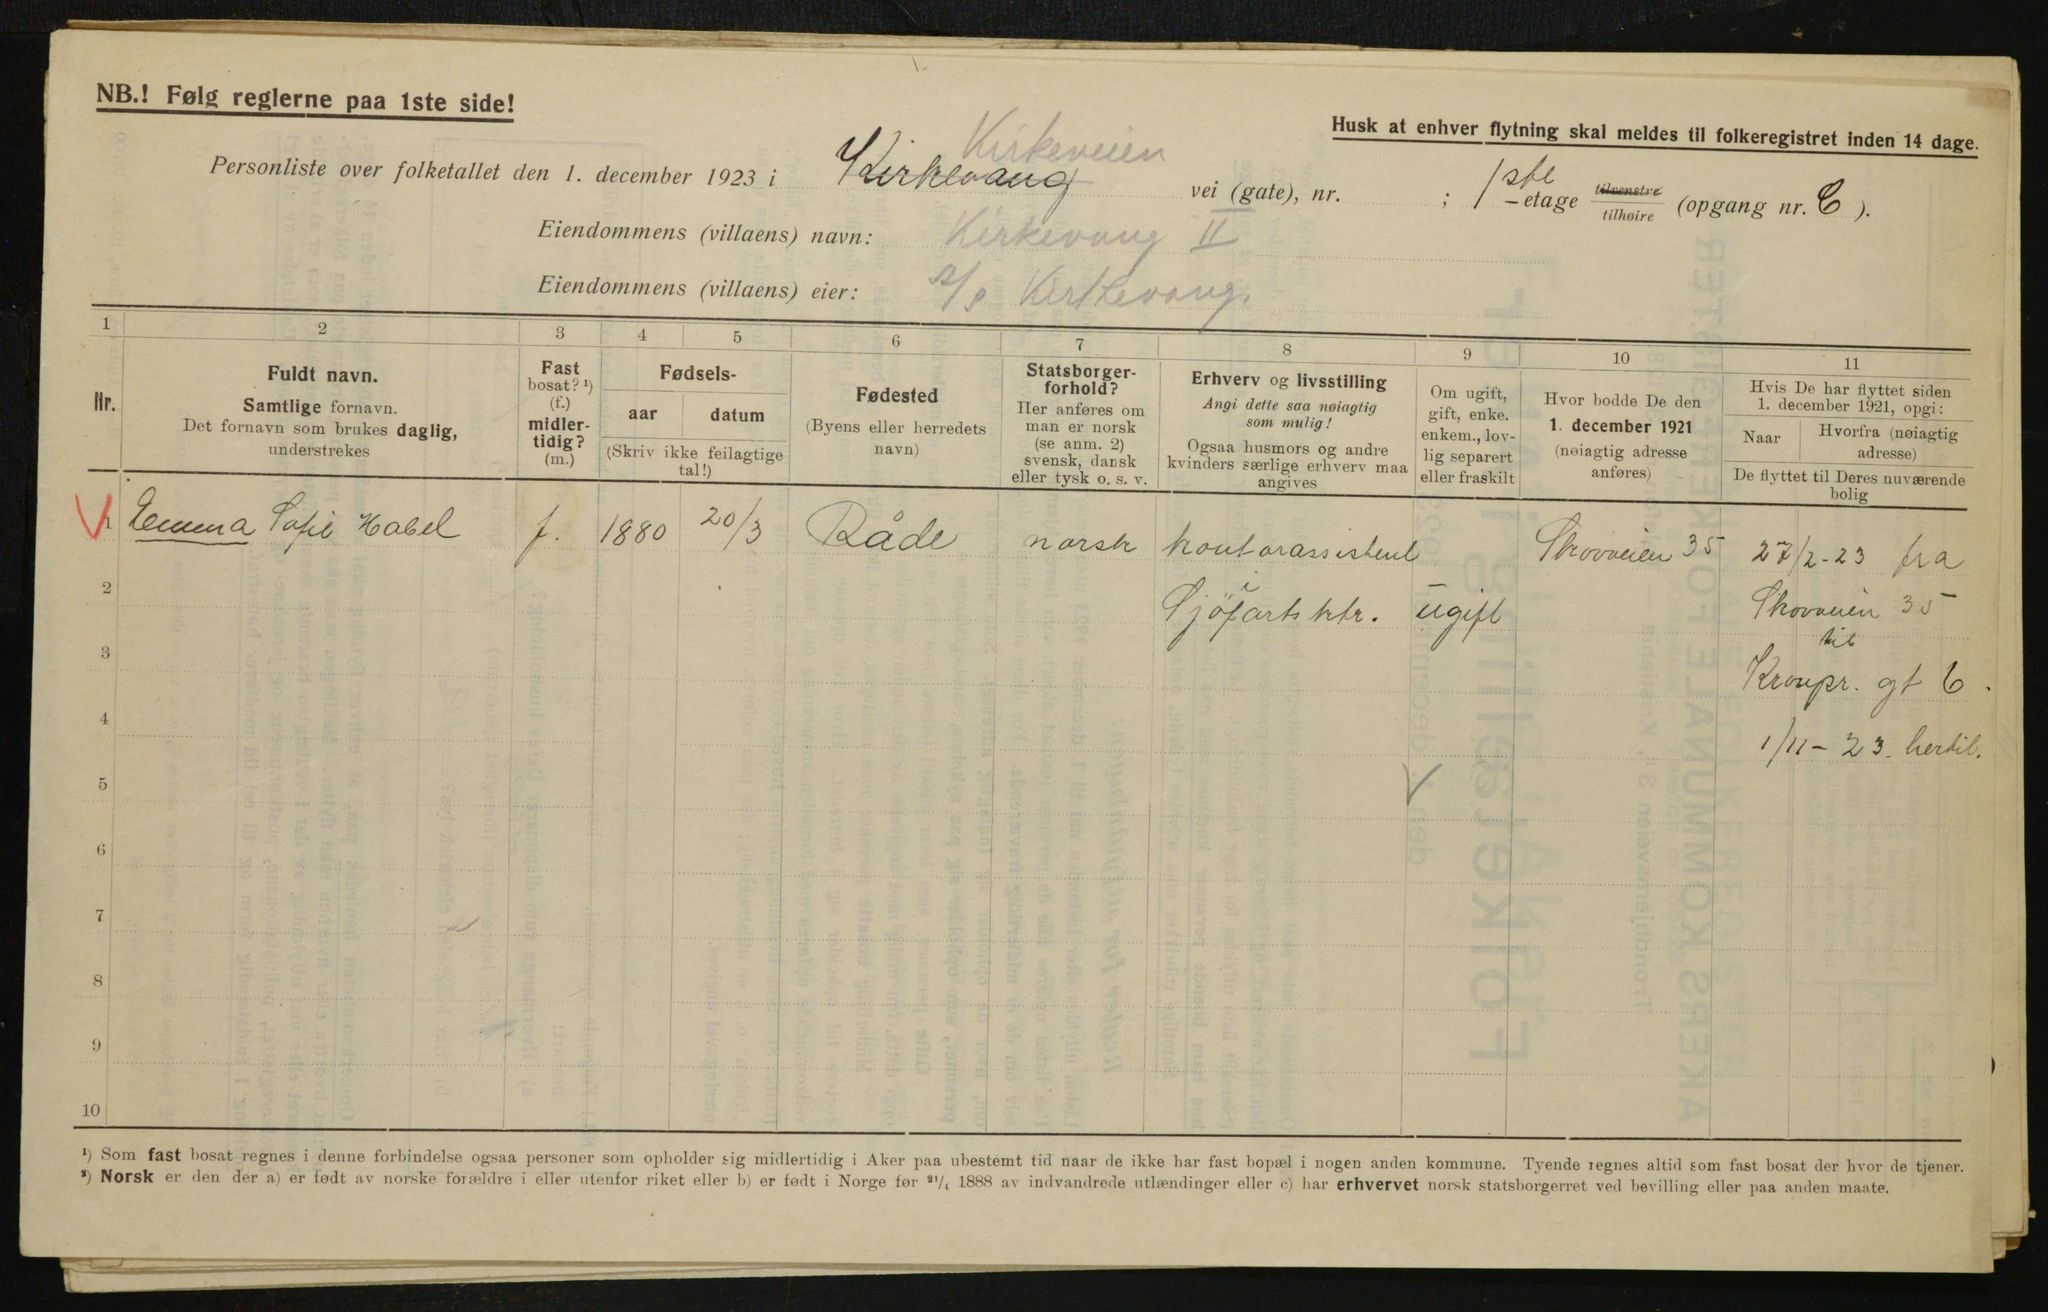 NB.! Følg reglerne paa 1ste side!
Husk at enhver flytning skal meldes til folkeregistret inden 14 dage.
Kirkeveien
Personliste over folketallet den 1. december 1923 i Kirkevang vei (gate), nr. ; 1ste -etage tilvenstre tilhøire (opgang nr. C).
Eiendommens (villaens) navn: Kirkevang II
Eiendommens (villaens) eier: A/S Kirkevang.
1 2 3 4 5 6 7 8 9 10 11
Nr.
Fuldt navn.
Samtlige fornavn.
Det fornavn som brukes daglig,
understrekes
Fast
bosat? ¹)
(f.)
midler-
tidig?
(m.)
Fødsels-
aar datum
(Skriv ikke feilagtige
tal!)
Fødested
(Byens eller herredets
navn)
Statsborger-
forhold?
Her anføres om
man er norsk
(se anm. 2)
svensk, dansk
eller tysk o. s. v.
Erhverv og livsstilling
Angi dette saa nøiagtig
som mulig!
Ogsaa husmors og andre
kvinders særlige erhverv maa
angives
Om ugift,
gift, enke.
enkem., lov-
lig separert
eller fraskilt
Hvor bodde De den
1. december 1921
(nøiagtig adresse
anføres)
Hvis De har flyttet siden
1. december 1921, opgi:
Naar Hvorfra (nøiagtig
adresse)
De flyttet til Deres nuværende
bolig
1 Emma Sofie Habel f. 1880 20/3 Råde norsk kontorassistent Skovveien 35 27/2-23 fra
2 i Sjöfartsktr. ugift Skovveien 35
3 til
Kronpr. gt 6.
4 1/11-23. hertil.
5
6
7
8
9
10
¹) Som fast bosat regnes i denne forbindelse ogsaa personer som opholder sig midlertidig i Aker paa ubestemt tid naar de ikke har fast bopæl i nogen anden kommune. Tyende regnes altid som fast bosat der hvor de tjener.
²) Norsk er den der a) er født av norske forældre i eller utenfor riket eller b) er født i Norge før ²¹/₄ 1888 av indvandrede utlændinger eller c) har erhvervet norsk statsborgerret ved bevilling eller paa anden maate.